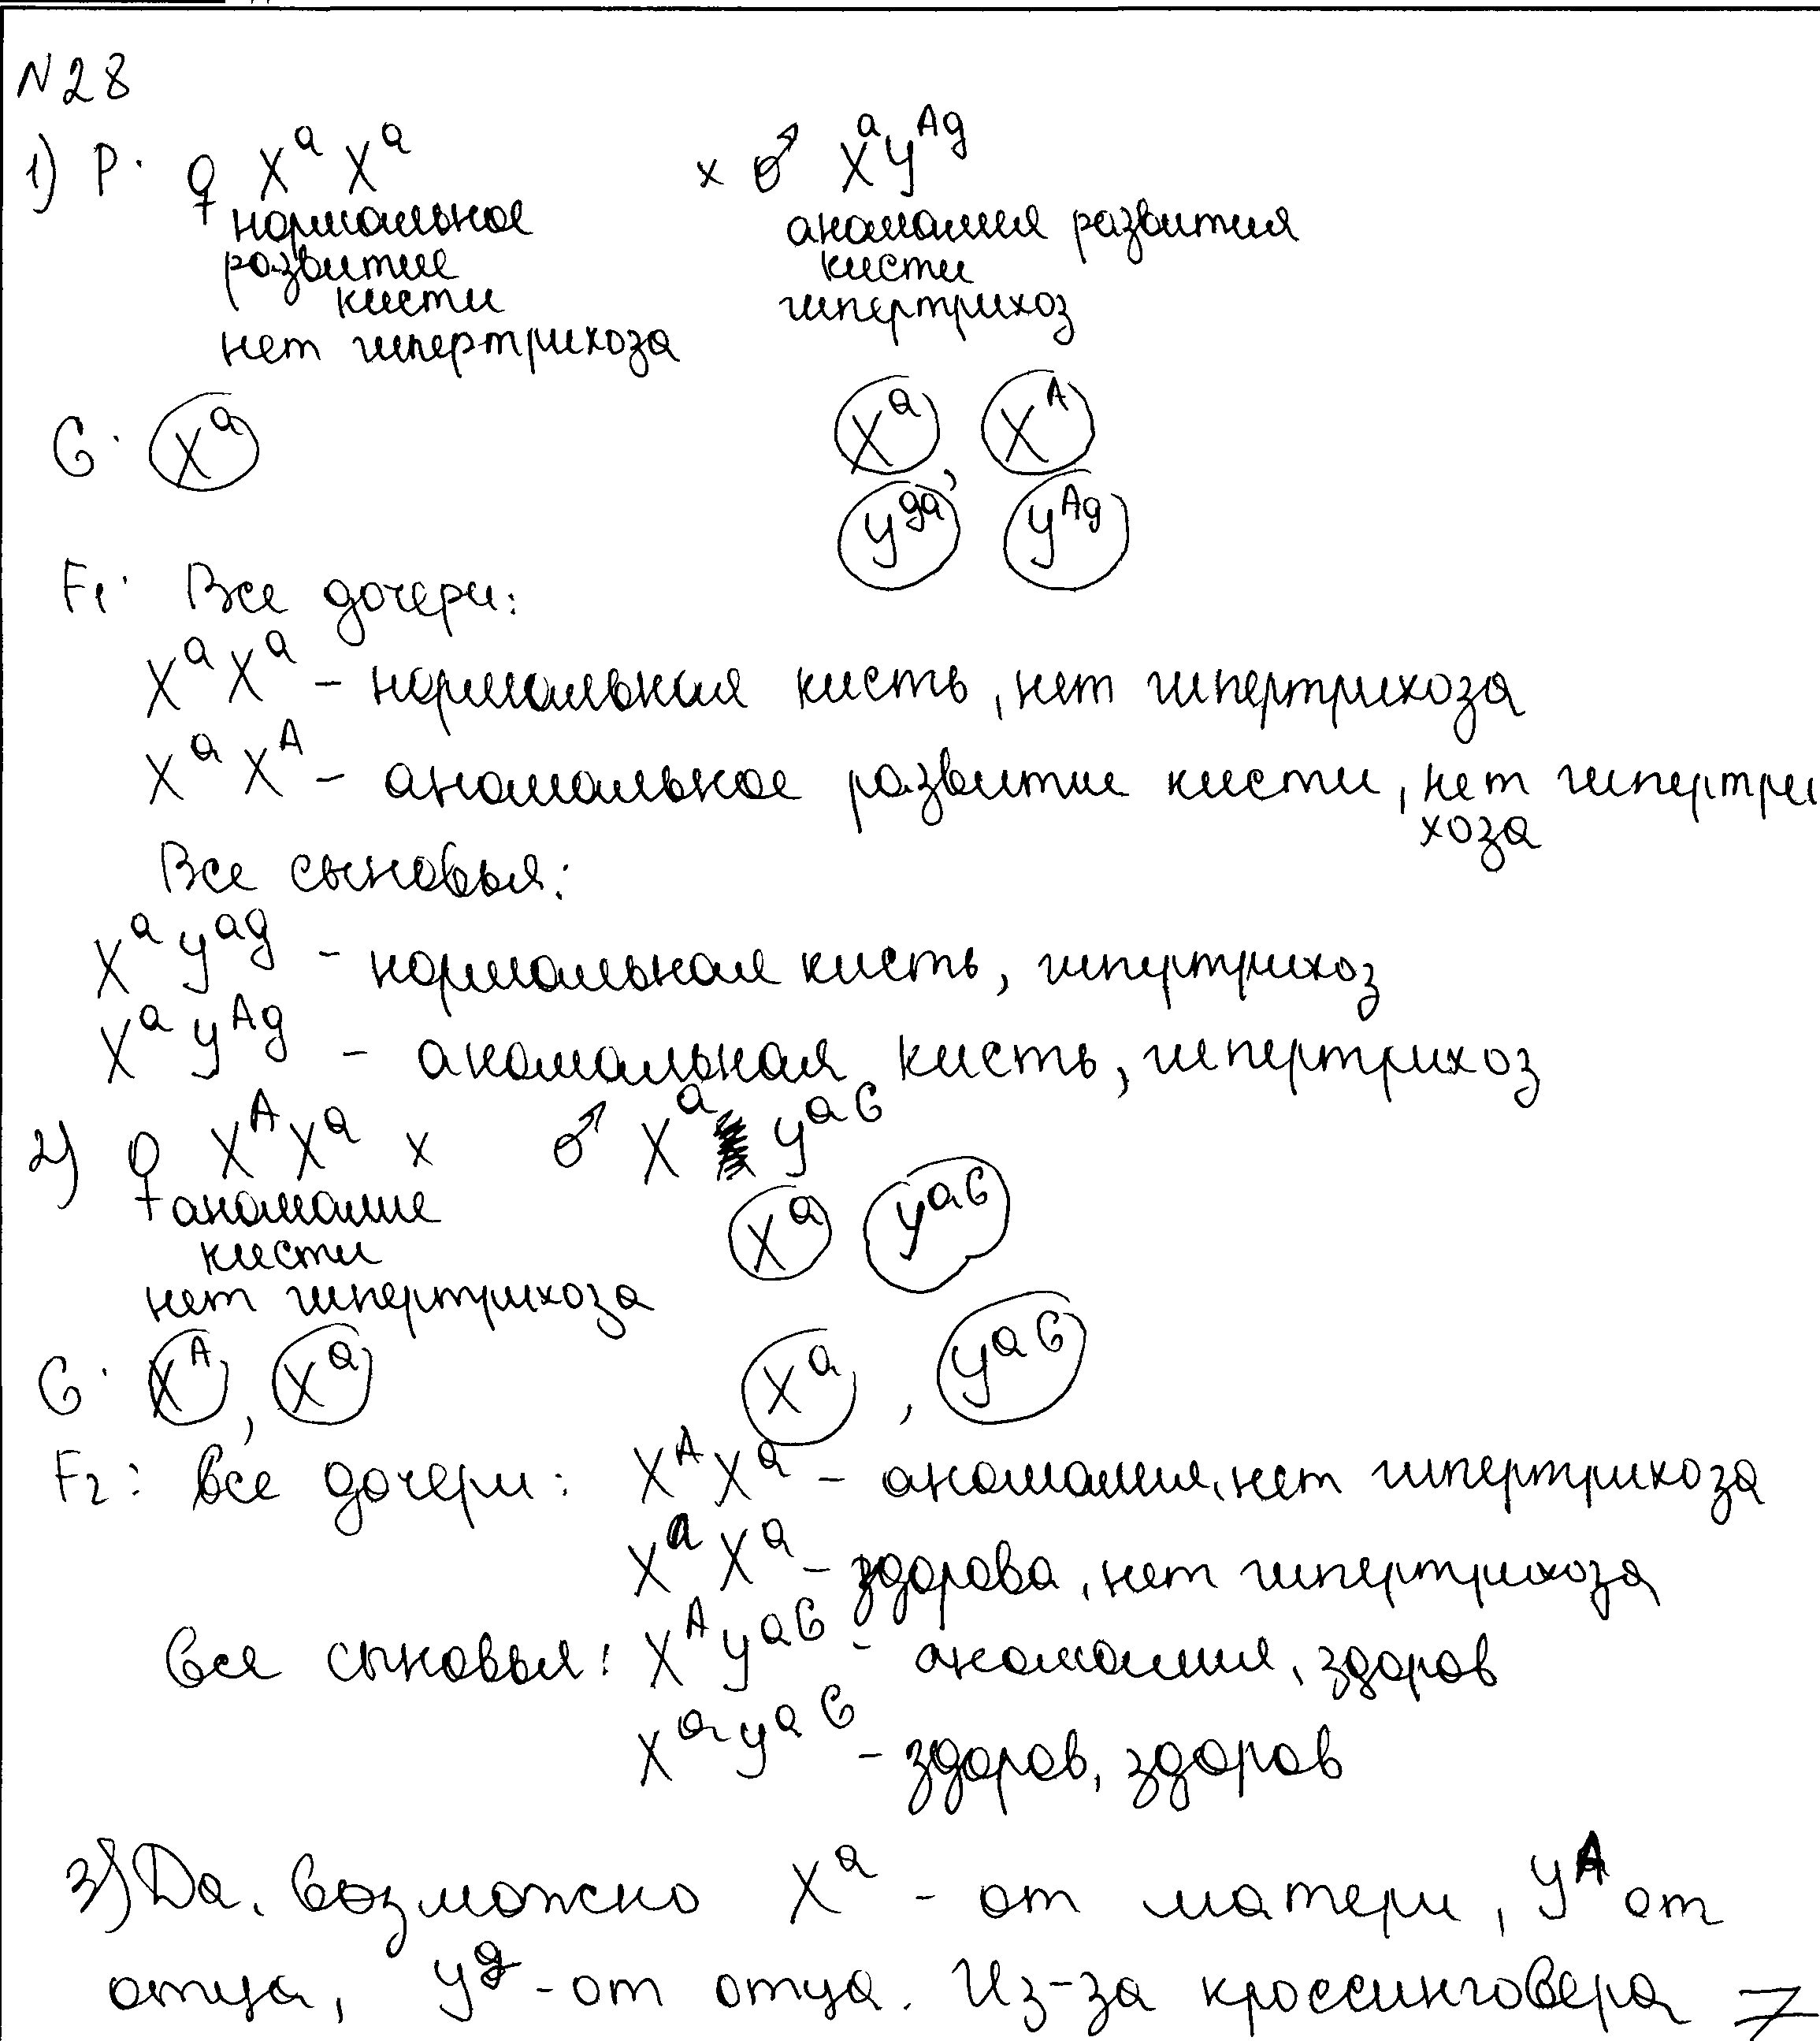 N28
1) P: ♀ XᵃXᵃ × ♂ XᵃYᴬᵍ
нормальное аномалия развития
развитие кисти
кисти гипертрихоз
нет гипертрихоза
G: Xᵃ Xᵃ, Xᴬ
Yᵍᵃ Yᴬᵍ
F₁: Все дочери:
XᵃXᵃ – нормальная кисть, нет гипертрихоза
XᵃXᴬ – аномальное развитие кисти, нет гипертри
хоза
Все сыновья:
XᵃYᵃᵍ – нормальная кисть, гипертрихоз
XᵃYᴬᵍ – аномальная кисть, гипертрихоз
2) ♀ XᴬXᵃ × ♂ Xᵃ Yᵃᴳ
аномалие
кисти Xᵃ Yᵃᴳ
нет гипертрихоза
G: Xᴬ, Xᵃ Xᵃ, Yᵃᴳ
F₂: все дочери: XᴬXᵃ – аномалия, нет гипертрихоза
XᵃXᵃ – здорова, нет гипертрихоза
все сыновья: XᴬYᵃᴳ – аномалия, здоров
XᵃYᵃᴳ – здоров, здоров
3) Да, возможно Xᵃ – от матери, Yᴬ от
отца, Yᵍ – от отца. Из-за кроссинговера